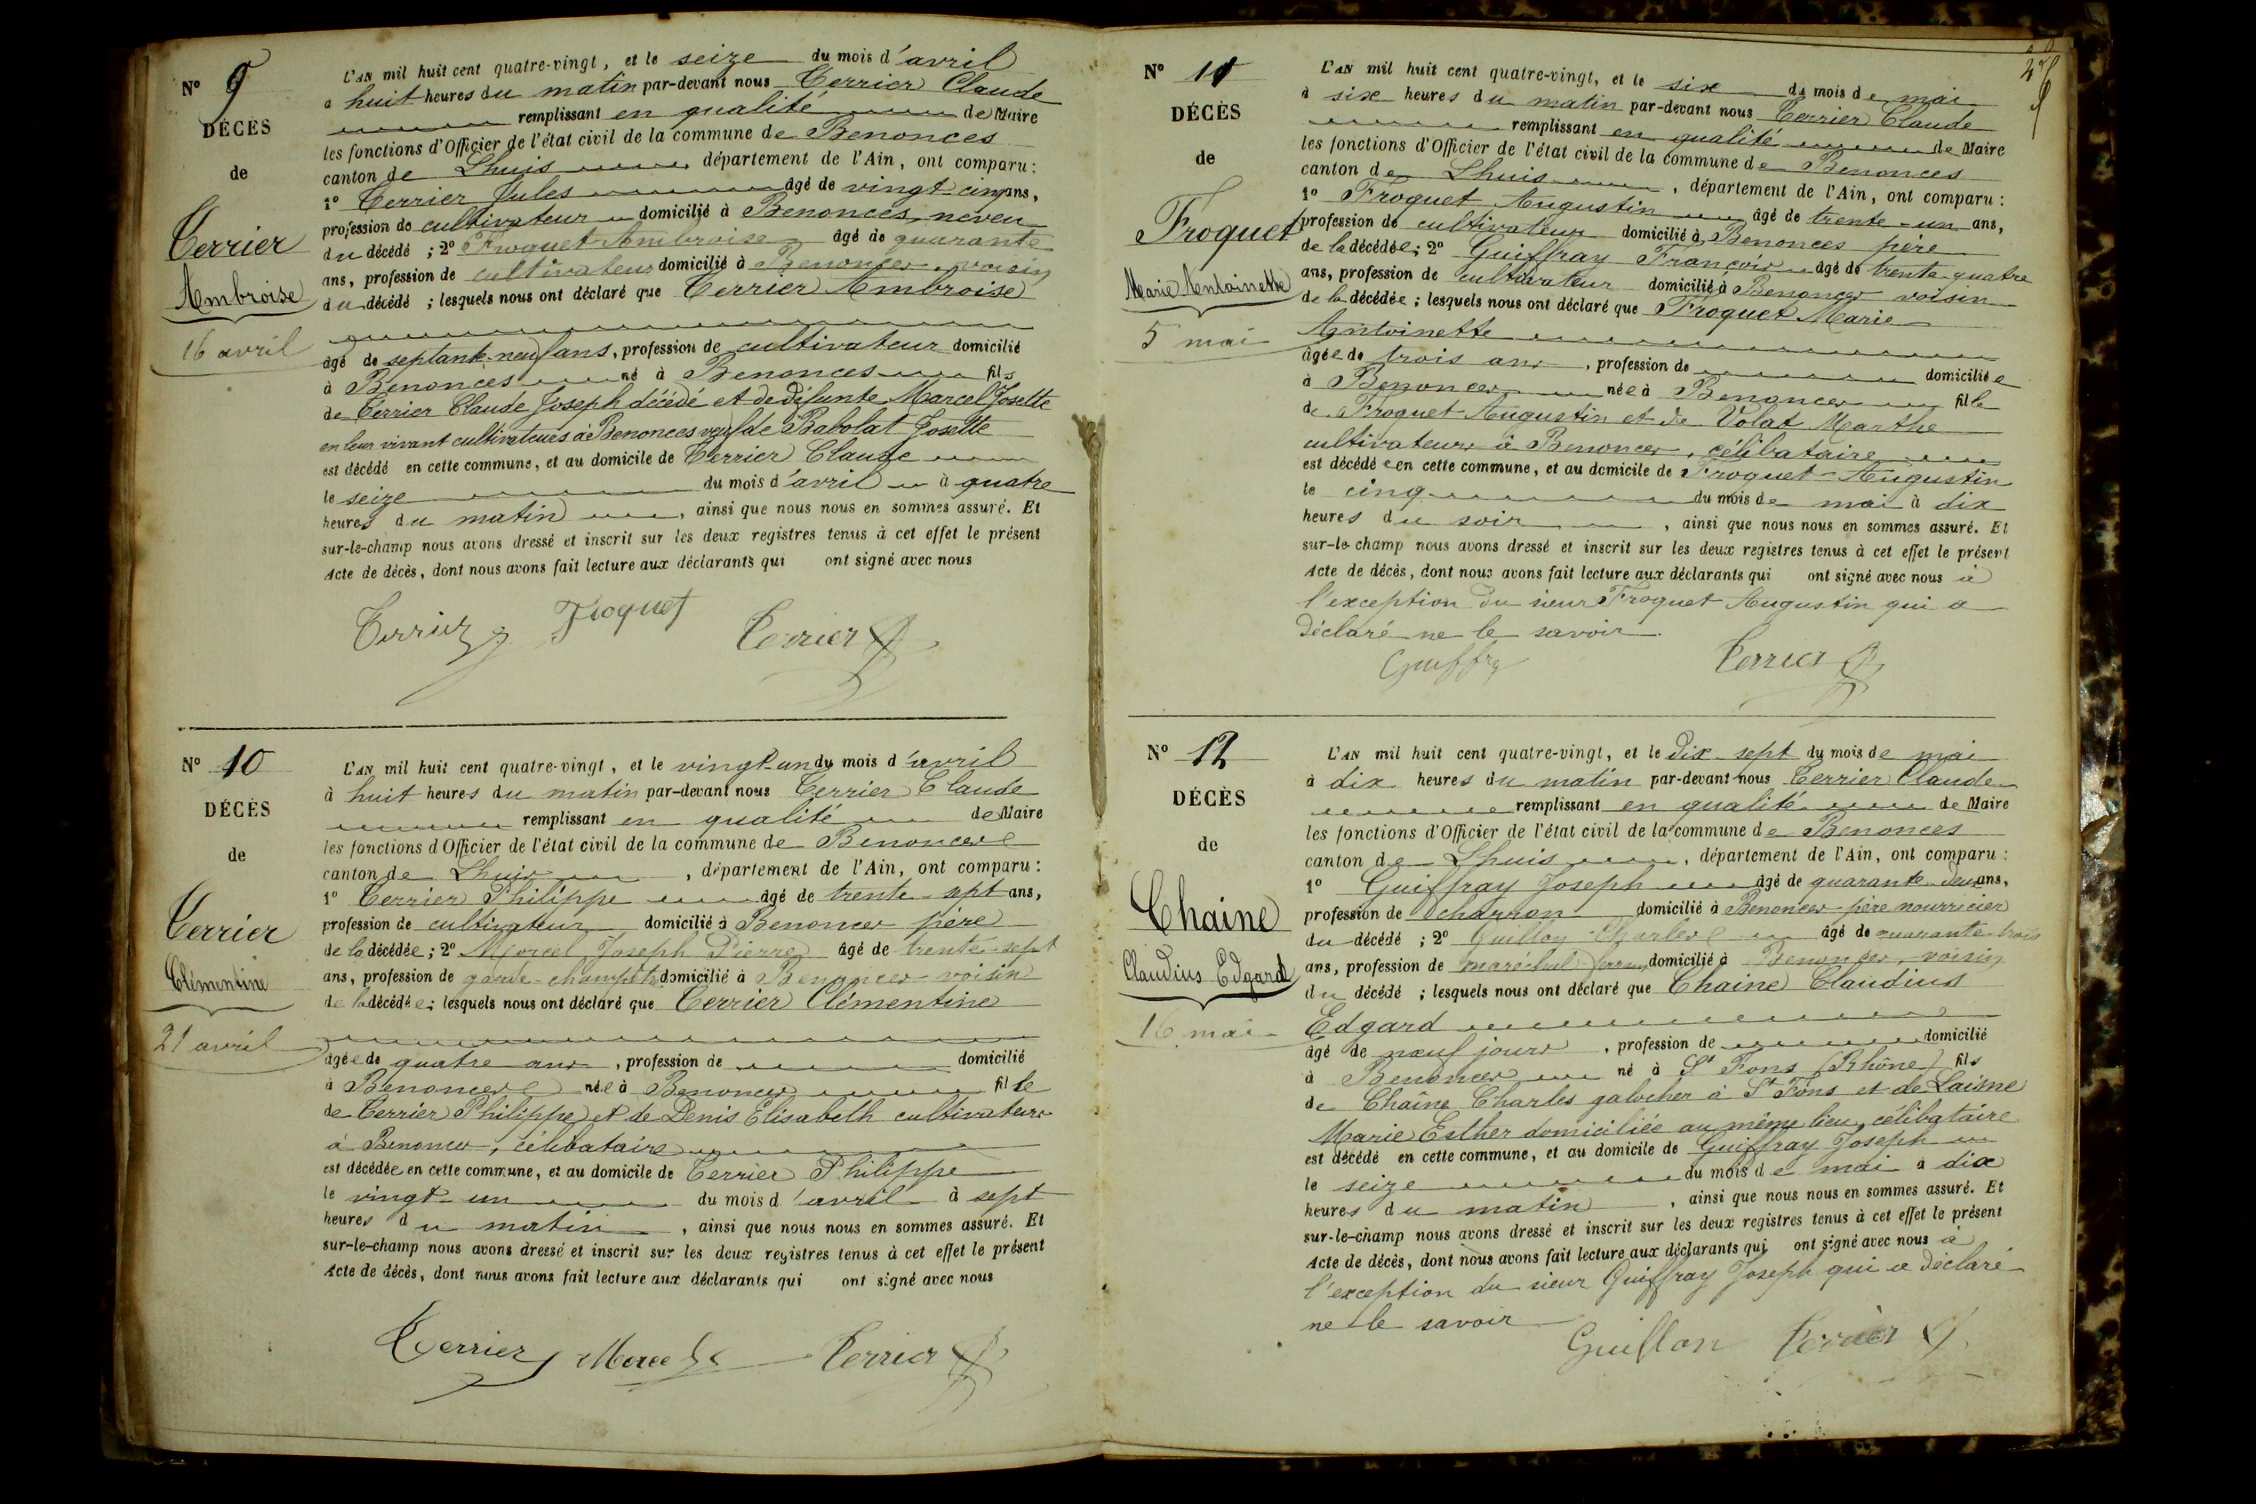 N° 9
DÉCÈS
de
Terrier
Ambroise
16 avril
L'AN mil huit cent quatre-vingt, et le seize du mois d'avril
à huit heures du matin par-devant nous Terrier Claude
remplissant en qualité de Maire
les fonctions d'Officier de l'état civil de la commune de Benonces
canton de Lhuis département de l'Ain, ont comparu :
1° Terrier Jules âgé de vingt cinq ans,
profession de cultivateur domicilié à Benonces, neveu
du décédé ; 2° Froquet Ambroise âgé de quarante
ans, profession de cultivateur domicilié à Benonces, voisin
du décédé ; lesquels nous ont déclaré que Terrier Ambroise
âgé de septante-neuf ans, profession de cultivateur domicilié
à Benonces né à Benonces fils
de Terrier Claude Joseph décédé et de défunte Marcel Josette
en leur vivant cultivateurs à Benonces veuf de Babolat Josette
est décédé en cette commune, et au domicile de Terrier Claude
le seize du mois d'avril à quatre
heures du matin, ainsi que nous nous en sommes assuré. Et
sur-le-champ nous avons dressé et inscrit sur les deux registres tenus à cet effet le présent
Acte de décès, dont nous avons fait lecture aux déclarants qui ont signé avec nous
Terrier J Froquet Terrier
N° 10
DÉCÈS
de
Terrier
Clémentine
21 avril
L'AN mil huit cent quatre-vingt, et le vingt-un du mois d'avril
à huit heures du matin par-devant nous Terrier Claude
remplissant en qualité de Maire
les fonctions d'Officier de l'état civil de la commune de Benonces
canton de Lhuis, département de l'Ain, ont comparu :
1° Terrier Philippe âgé de trente-sept ans,
profession de cultivateur domicilié à Benonces père
de la décédée ; 2° Marcel Joseph Pierre âgé de trente-sept
ans, profession de garde-champêtre domicilié à Benonces voisin
de la décédée ; lesquels nous ont déclaré que Terrier Clémentine
âgée de quatre ans, profession de domicilié
à Benonces née à Benonces fille
de Terrier Philippe et de Denis Elisabeth cultivateurs
à Benonces, célibataire
est décédée en cette commune, et au domicile de Terrier Philippe
le vingt-un du mois d'avril à sept
heures du matin, ainsi que nous nous en sommes assuré. Et
sur-le-champ nous avons dressé et inscrit sur les deux registres tenus à cet effet le présent
Acte de décès, dont nous avons fait lecture aux déclarants qui ont signé avec nous
Terrier Marcel Terrier
N° 11
DÉCÈS
de
Froquet
Marie Antoinette
5 mai
L'AN mil huit cent quatre-vingt, et le six du mois de mai
à six heures du matin par-devant nous Terrier Claude
remplissant en qualité de Maire
les fonctions d'Officier de l'état civil de la commune de Benonces
canton de Lhuis, département de l'Ain, ont comparu :
1° Froquet Augustin âgé de trente-un ans,
profession de cultivateur domicilié à Benonces père
de la décédée ; 2° Guiffray François âgé de trente-quatre
ans, profession de cultivateur domicilié à Benonces voisin
de la décédée ; lesquels nous ont déclaré que Froquet Marie
Antoinette
âgée de trois ans, profession de domiciliée
à Benonces née à Benonces fille
de Froquet Augustin et de Volat Marthe
cultivateurs à Benonces, célibataire
est décédée en cette commune, et au domicile de Froquet Augustin
le cinq du mois de mai à dix
heures du soir, ainsi que nous nous en sommes assuré. Et
sur-le-champ nous avons dressé et inscrit sur les deux registres tenus à cet effet le présent
Acte de décès, dont nous avons fait lecture aux déclarants qui ont signé avec nous à
l'exception du sieur Froquet Augustin qui a
déclaré ne le savoir
Guiffray Terrier
N° 12
DÉCÈS
de
Chaine
Claudius Edgard
16 mai
L'AN mil huit cent quatre-vingt, et le dix-sept du mois de mai
à dix heures du matin par-devant nous Terrier Claude
remplissant en qualité de Maire
les fonctions d'Officier de l'état civil de la commune de Benonces
canton de Lhuis, département de l'Ain, ont comparu :
1° Guiffray Joseph âgé de quarante-deux ans,
profession de charron domicilié à Benonces père nourricier
du décédé ; 2° Guillon Charles âgé de quarante-trois
ans, profession de maréchal domicilié à Benonces, voisin
du décédé ; lesquels nous ont déclaré que Chaine Claudius
Edgard
âgé de neuf jours, profession de domicilié
à Benonces né à St Fons (Rhône) fils
de Chaîne Charles galocher à St Fons et de Laisne
Marie Esther domiciliée au même lieu, célibataire
est décédé en cette commune, et au domicile de Guiffray Joseph
le seize du mois de mai à dix
heures du matin, ainsi que nous nous en sommes assuré. Et
sur-le-champ nous avons dressé et inscrit sur les deux registres tenus à cet effet le présent
Acte de décès, dont nous avons fait lecture aux déclarants qui ont signé avec nous à
l'exception du sieur Guiffray Joseph qui a déclaré
ne le savoir
Guillon Terrier